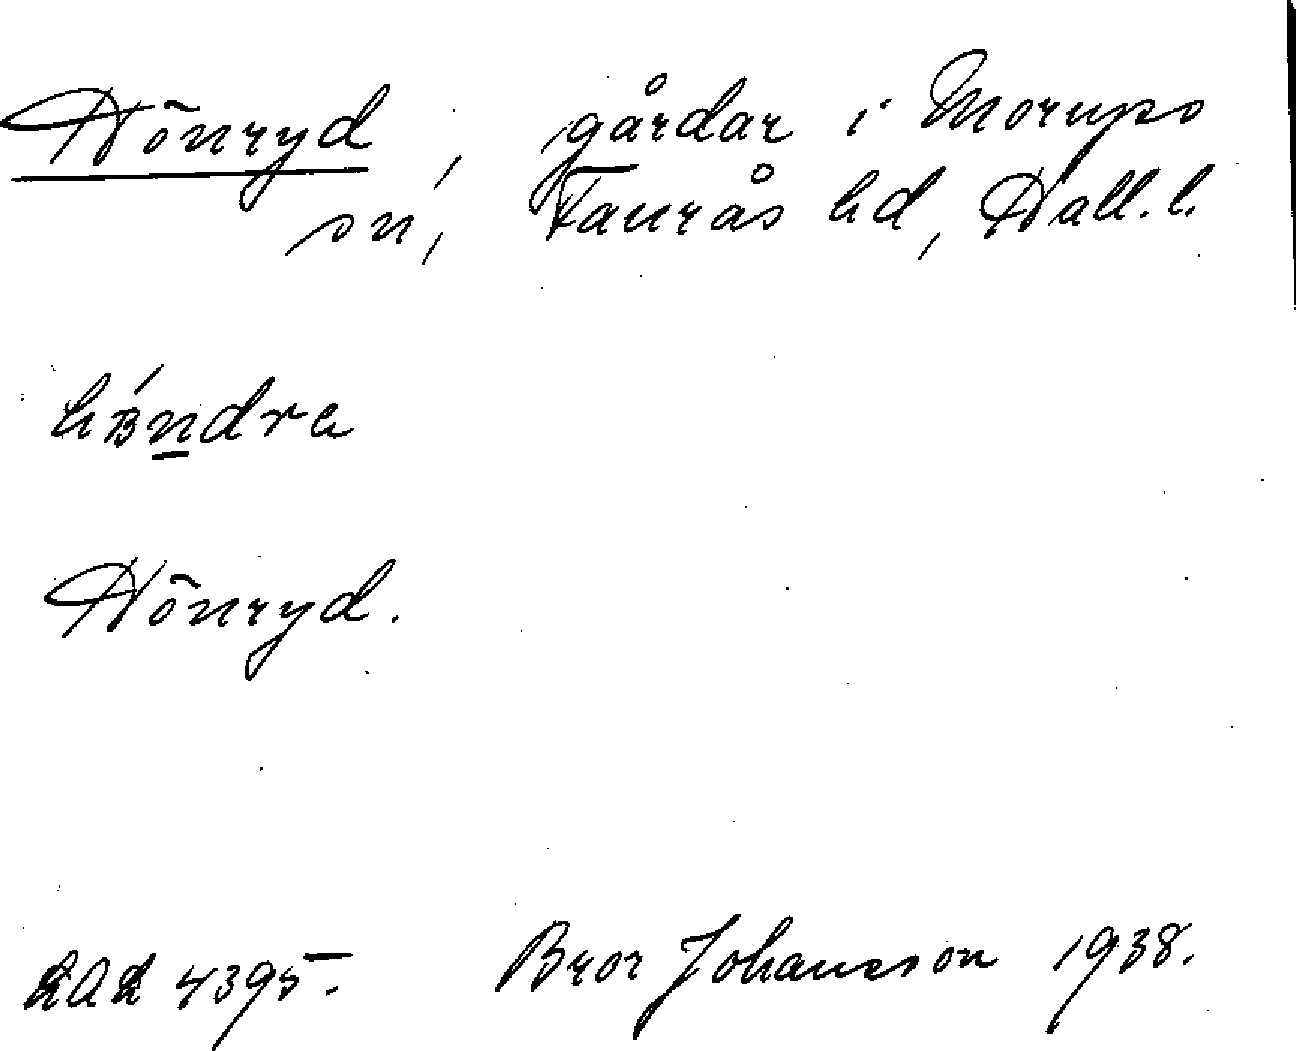 Hönryd, gårdar i Morups
sn, Faurås hd, Hall. l.
Hönryd.
LAL 4395. Bror Johansson 1938.